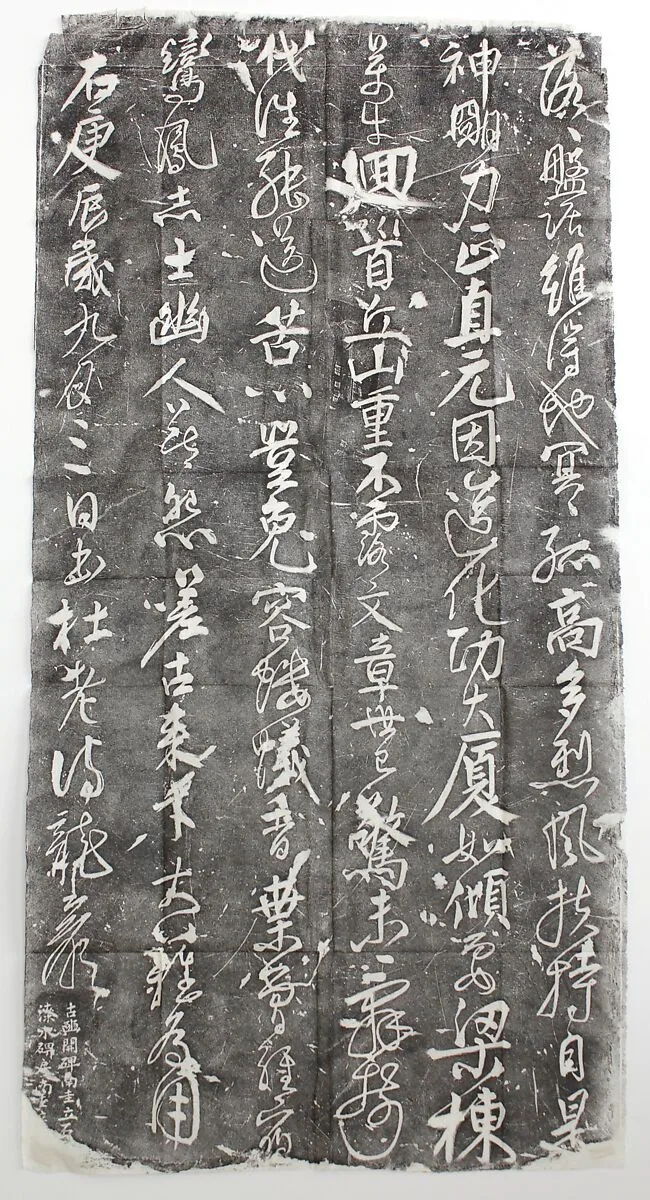 落〻盤踞雖得地冥〻孤高多烈風扶持自是
神明力正直元因造化功大廈如傾要梁棟
萬牛迴首丘山重不露文章世已驚未辭剪
伐誰能送苦心豈免容螻蟻香葉曾經宿
鸞鳳志士幽人莫怨嗟古來材大難為用
右庚辰歲九月三日書杜老詩龍巖
古豳開碑高圭立石
水碑